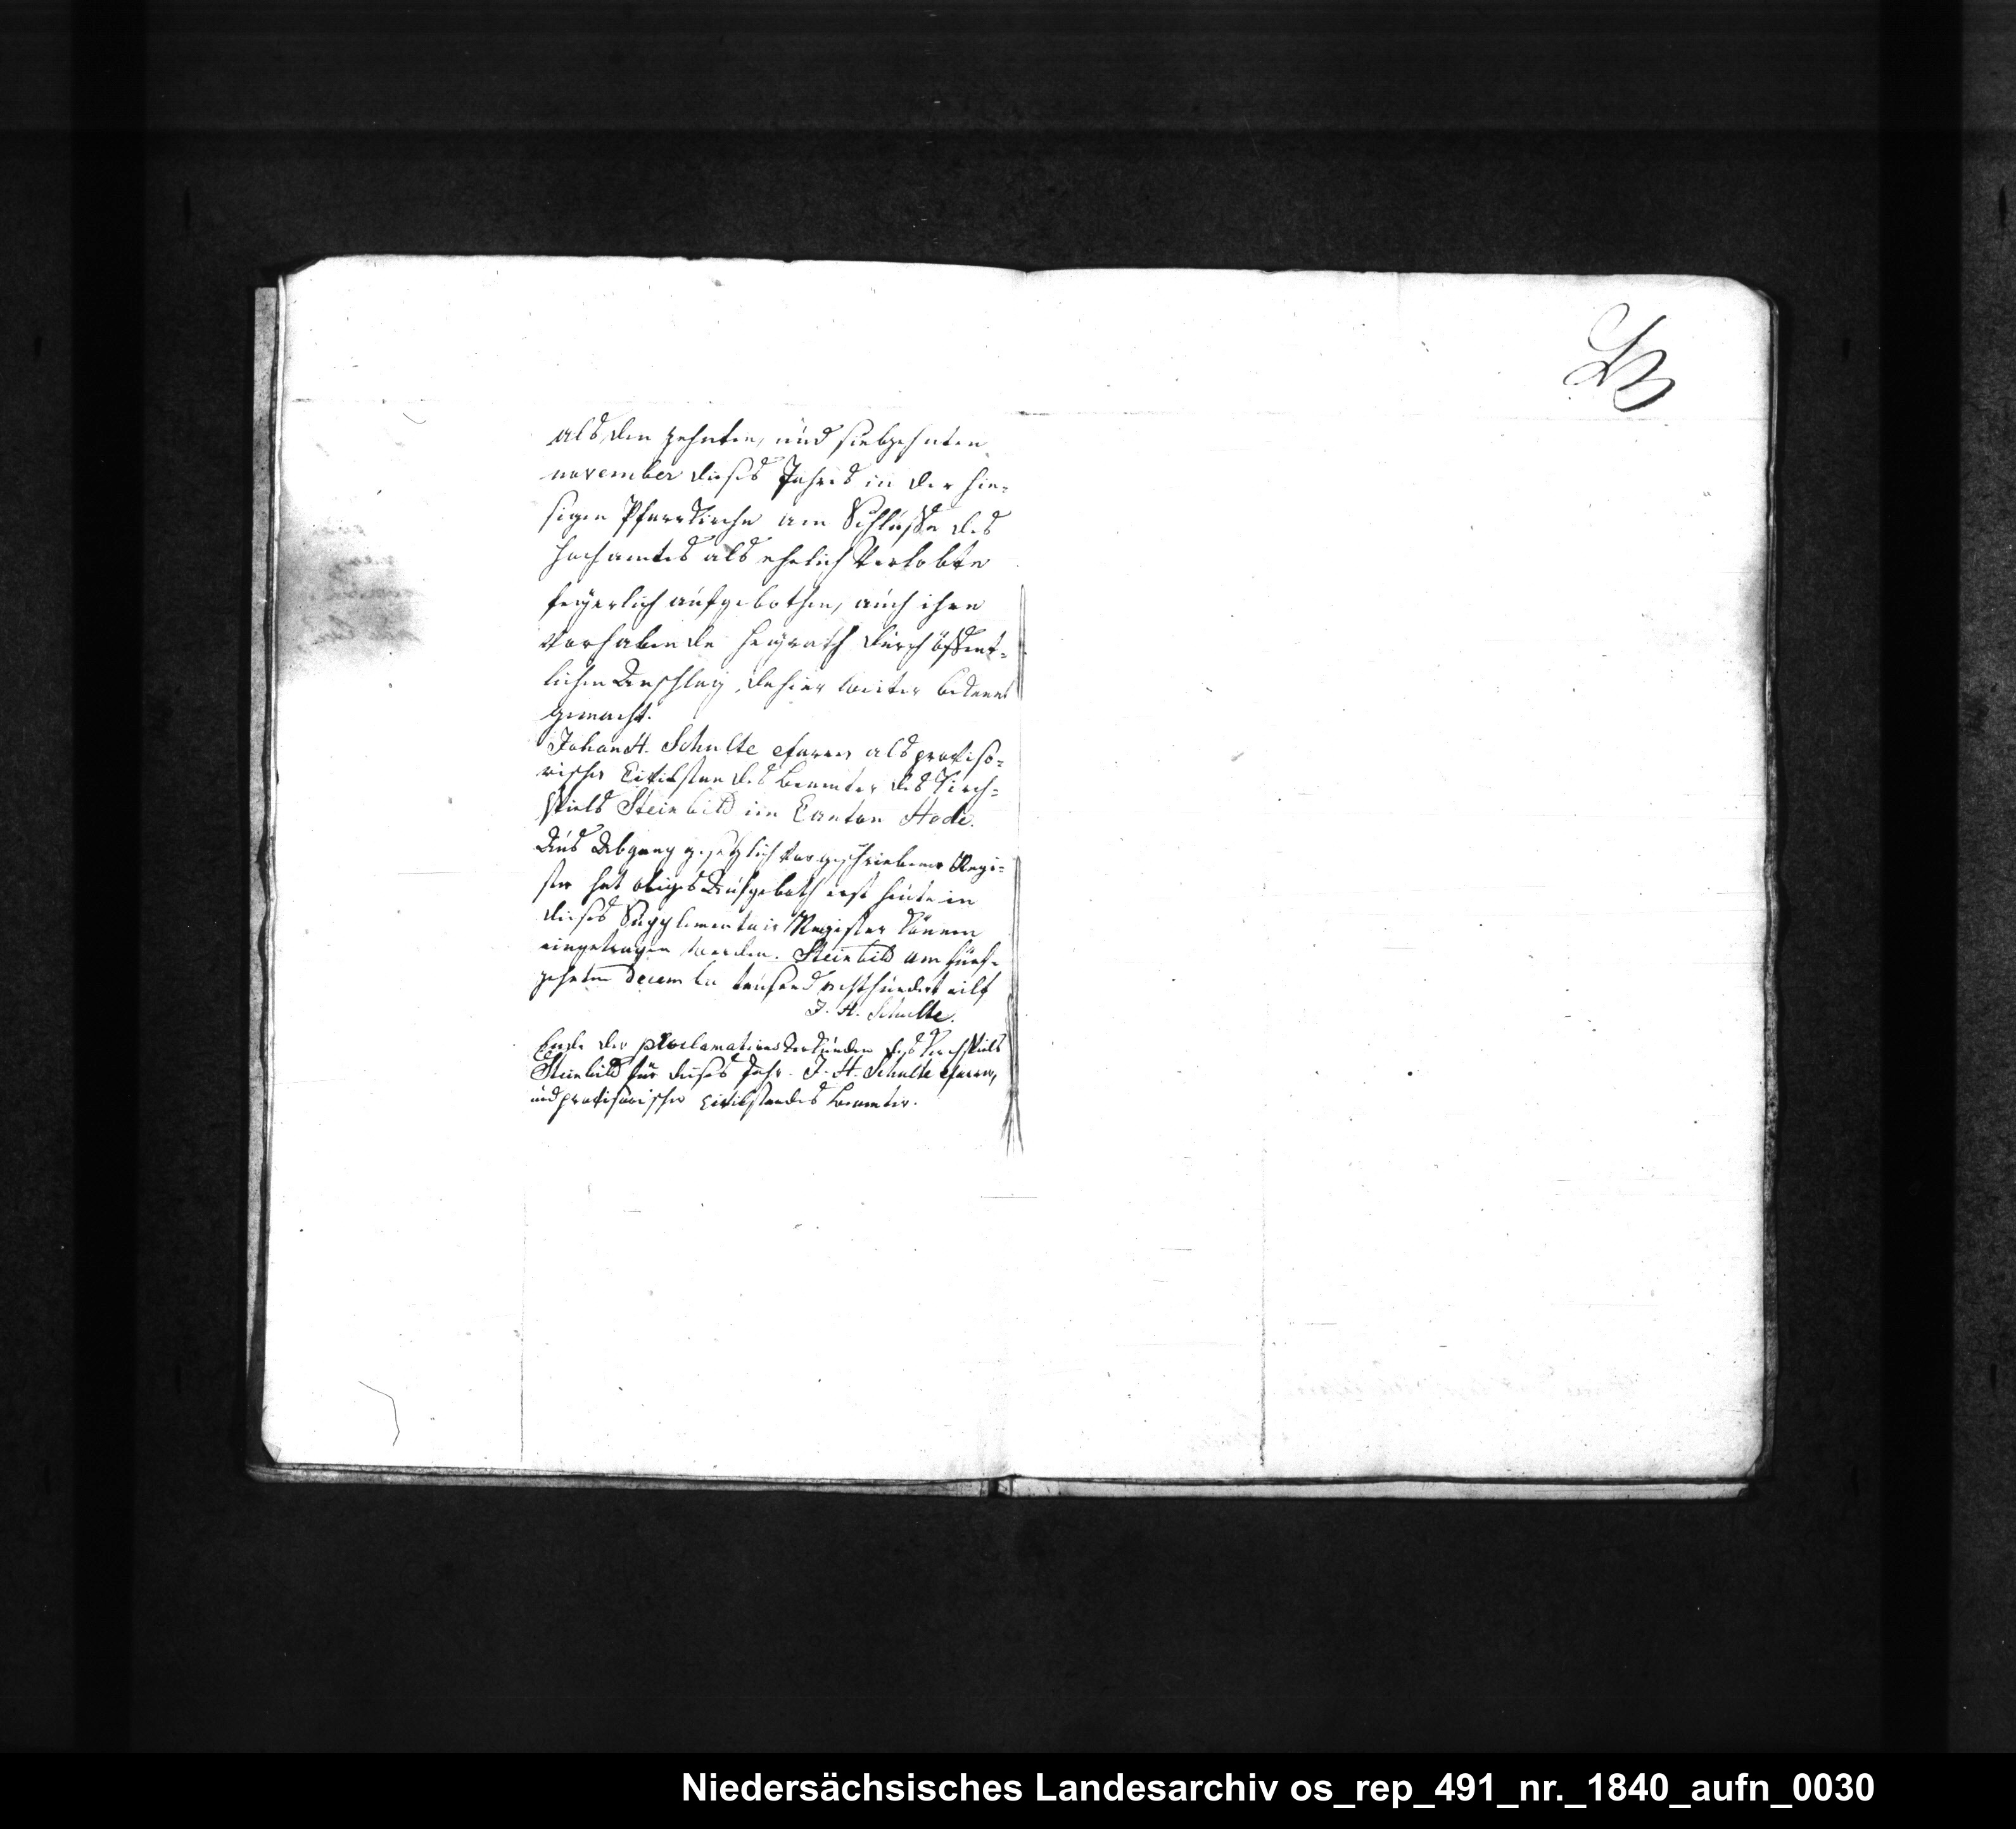 als den zehnten, und siebzehnten
november dieses Jahres in der hie-
sigen Pfarrkirche am Schlusse des
hochamtes als ehelich Verlobte
feyerlich aufgebothen, auch ihre
Vorhabende heyrath durch öffent-
lichen Anschlag, dahier weiter bekannt
gemacht.
Johan H. Schulte pfarrer als proviso-
rischer Civilstandes beamter des Kirch-
spiels Steinbild im Canton Hede.
Aus Abgang gesetzlich vorgeschriebener Regi-
ster hat obiges Aufgeboth erst heute in
dieses Supplementair Register können
eingetragen werden. Steinbild am fünf-
zehnten December tausend achthundert eilf
J. H. Schulte.
Ende der proclamations Urkunden des Kirchspiels
Steinbild für dieses Jahr. J. H. Schulte pfarrer,
und provisorischer civilstandes beamter.
Niedersächsisches Landesarchiv os_rep_491_nr._1840_aufn_0030